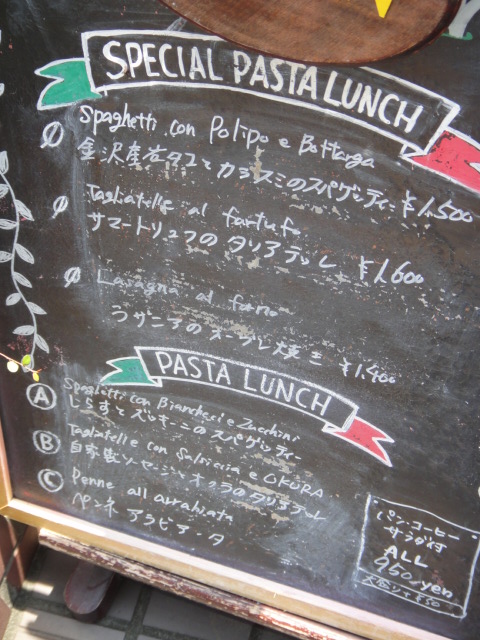 SPECIAL PASTA LUNCH
Spaghetti con Polipo e Bottarga
金沢産岩タコとカラスミのスパゲッティ ¥1,500
Tagliatelle al tartufo
サマートリュフのタリアテッレ ¥1,600
Lasagna al forno
ラザニアのオーブン焼き ¥1,400
PASTA LUNCH
A Spaghetti con Bianchetti e Zucchini
しらすとズッキーニのスパゲッティー
B Tagliatelle con Salsiccia e OKURA
自家製ソーセージとオクラのタリアテッレ
C Penne all arrabiata
ペンネ アラビアータ
パン・コーヒー
サラダ付
ALL
950yen
大盛り+¥50